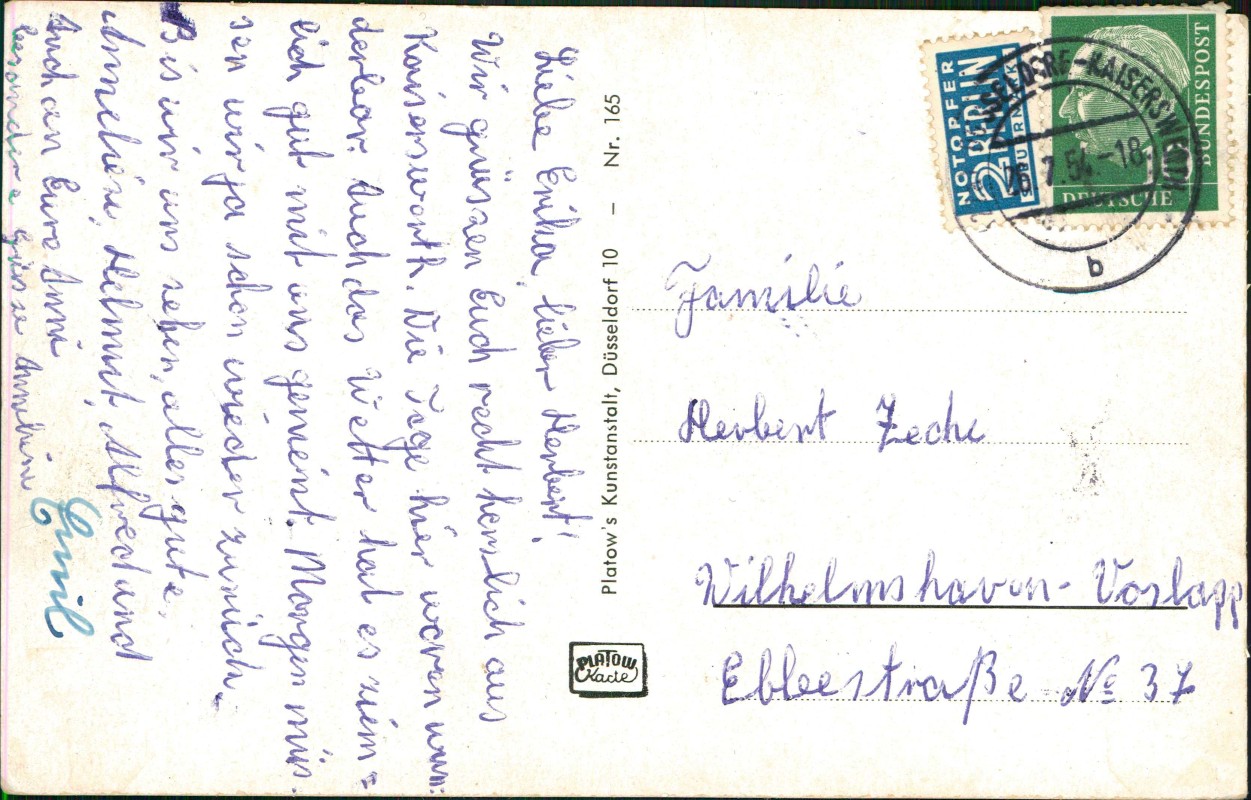 Liebe Erika, lieber Herbert!
Wir grüssen Euch recht herslich aus
Kaiserswerth. Die Tage hier waren wun=
derbar. Auch das Wetter hat es ziem=
lich gut mit uns gemeint. Morgen müs.
sen wir ja schon wieder zurück.
Bis wir uns sehen, alles gute,
Anneliese, Helmut, Alfred und
Auch an Eure
besondere Grüsse
Emil
Platow's Kunstanstalt, Düsseldorf 10 – Nr. 165
PLATOW
Karte
NOTOPFER
2 BERLIN
STEUERMARKE
DEUTSCHE
BUNDESPOST
DÜSSELDORF-KAISERSWERTH
26.7.54.-18
b
Familie
Herbert Zeche
Wilhelmshaven- Voslapp
Ebbeestraße № 37